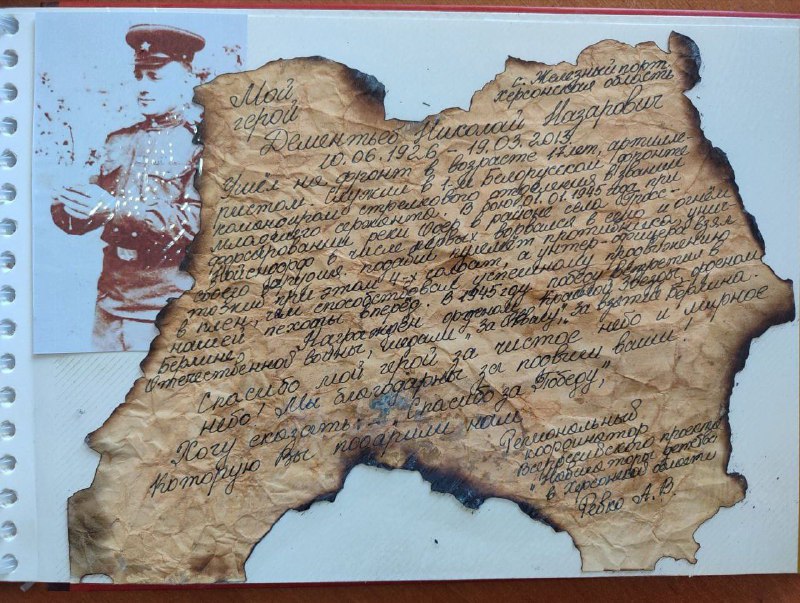 с. Железный порт
Херсонская область
Мой
герой
Дементьев Николай Назарович
10.06.1926 – 19.03.2013
Ушёл на фронт в возрасте 17 лет, артилле-
ристом. Служил в 1-м Белорусском фронте
командиром стрелкового отделения в звании
младшего сержанта. В бою 01.01.1945 года при
форсировании реки Одер в районе села
в числе первых ворвался в село и огнём
своего оружия подавил пулемёт противника, унич-
тожил при этом 4-х солдат, а унтер-офицера взял
в плен, чем способствовал успешному продвижению
нашей пехоты вперёд. В 1945 году победу встретил в
Берлине. Награждён орденом Красной Звезды, орденом
Отечественной войны, медалями "За Отвагу", "За взятие Берлина.
Спасибо мой герой за чистое небо и мирное
небо! Мы благодарны за подвиги ваши!
Хочу сказать: "Спасибо за Победу",
Которую Вы подарили нам
Региональный
координатор
Всероссийского проекта
"Навигаторы детства"
в Херсонской области
Ревко А.В.